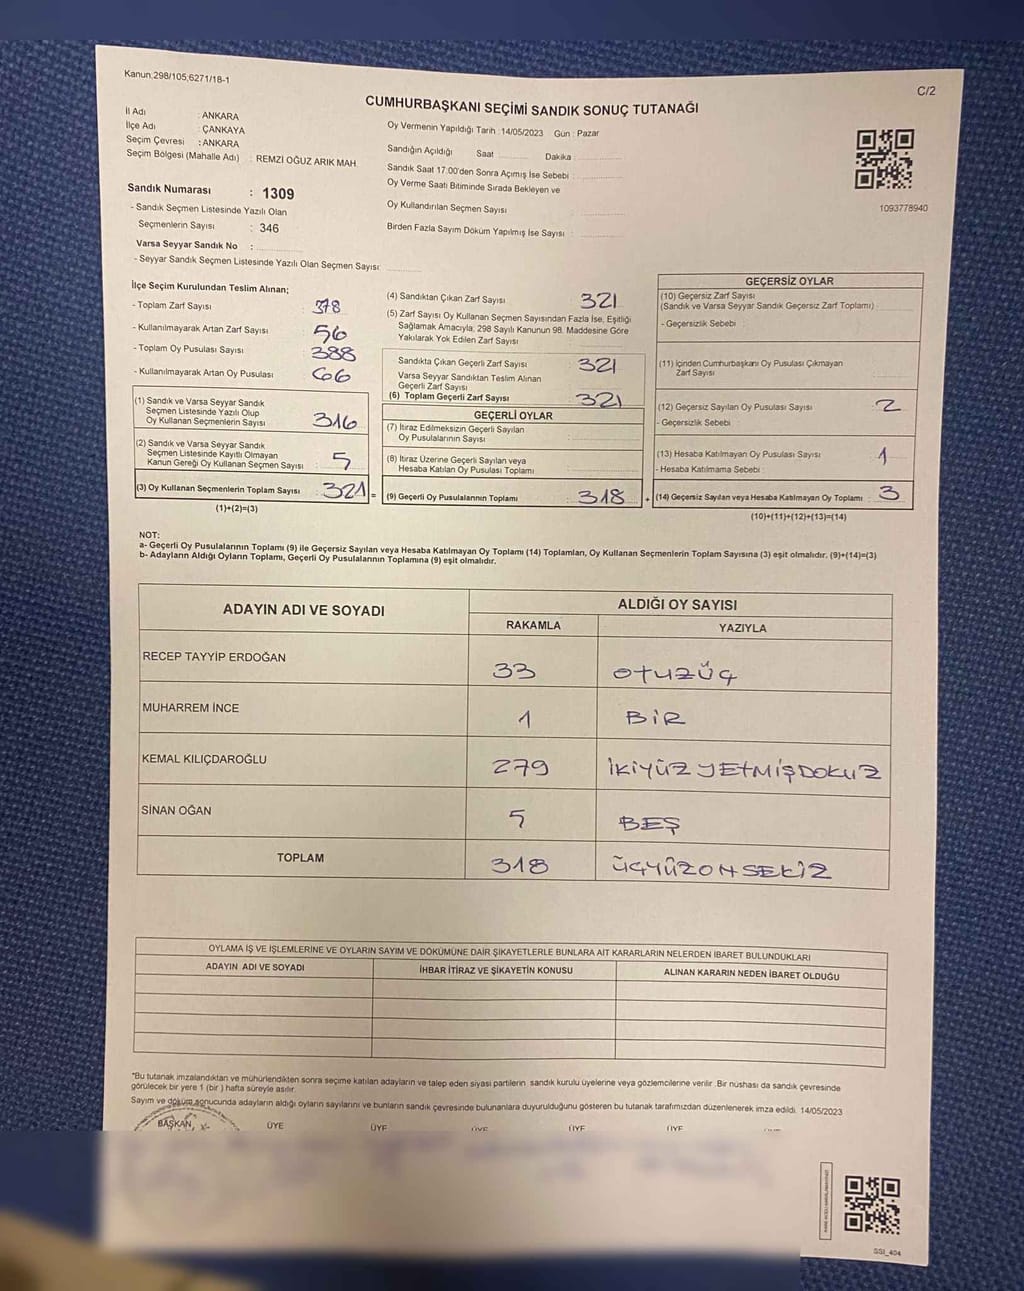 Kanun:298/105,6271/18-1
C/2
CUMHURBAŞKANI SEÇİMİ SANDIK SONUÇ TUTANAĞI
İl Adı : ANKARA
İlçe Adı : ÇANKAYA
Seçim Çevresi : ANKARA
Seçim Bölgesi (Mahalle Adı) : REMZİ OĞUZ ARIK MAH.
Sandık Numarası : 1309
- Sandık Seçmen Listesinde Yazılı Olan
Seçmenlerin Sayısı : 346
Varsa Seyyar Sandık No :
- Seyyar Sandık Seçmen Listesinde Yazılı Olan Seçmen Sayısı:
Oy Vermenin Yapıldığı Tarih : 14/05/2023 Gün : Pazar
Sandığın Açıldığı Saat Dakika
Sandık Saat 17:00'den Sonra Açımış İse Sebebi :
Oy Verme Saati Bitiminde Sırada Bekleyen ve
Oy Kullandırılan Seçmen Sayısı
Birden Fazla Sayım Döküm Yapılmış İse Sayısı :
1093778940
İlçe Seçim Kurulundan Teslim Alınan;
- Toplam Zarf Sayısı : 378
- Kullanılmayarak Artan Zarf Sayısı : 56
- Toplam Oy Pusulası Sayısı : 388
- Kullanılmayarak Artan Oy Pusulası : 66
(1) Sandık ve Varsa Seyyar Sandık
Seçmen Listesinde Yazılı Olup
Oy Kullanan Seçmenlerin Sayısı : 316
(2) Sandık ve Varsa Seyyar Sandık
Seçmen Listesinde Kayıtlı Olmayan
Kanun Gereği Oy Kullanan Seçmen Sayısı : 5
(3) Oy Kullanan Seçmenlerin Toplam Sayısı : 321 =
(1)+(2)=(3)
(4) Sandıktan Çıkan Zarf Sayısı : 321
(5) Zarf Sayısı Oy Kullanan Seçmen Sayısından Fazla İse, Eşitliği
Sağlamak Amacıyla, 298 Sayılı Kanunun 98. Maddesine Göre
Yakılarak Yok Edilen Zarf Sayısı :
Sandıkta Çıkan Geçerli Zarf Sayısı : 321
Varsa Seyyar Sandıktan Teslim Alınan
Geçerli Zarf Sayısı :
(6) Toplam Geçerli Zarf Sayısı : 321
GEÇERLİ OYLAR
(7) İtiraz Edilmeksizin Geçerli Sayılan
Oy Pusulalarının Sayısı :
(8) İtiraz Üzerine Geçerli Sayılan veya
Hesaba Katılan Oy Pusulası Toplamı :
(9) Geçerli Oy Pusulalarının Toplamı : 318 +
GEÇERSİZ OYLAR
(10) Geçersiz Zarf Sayısı
(Sandık ve Varsa Seyyar Sandık Geçersiz Zarf Toplamı) :
- Geçersizlik Sebebi :
(11) İçinden Cumhurbaşkanı Oy Pusulası Çıkmayan
Zarf Sayısı
(12) Geçersiz Sayılan Oy Pusulası Sayısı : 2
- Geçersizlik Sebebi :
(13) Hesaba Katılmayan Oy Pusulası Sayısı : 1
- Hesaba Katılmama Sebebi :
(14) Geçersiz Sayılan veya Hesaba Katılmayan Oy Toplamı : 3
(10)+(11)+(12)+(13)=(14)
NOT:
a- Geçerli Oy Pusulalarının Toplamı (9) ile Geçersiz Sayılan veya Hesaba Katılmayan Oy Toplamı (14) Toplamları, Oy Kullanan Seçmenlerin Toplam Sayısına (3) eşit olmalıdır. (9)+(14)=(3)
b- Adayların Aldığı Oyların Toplamı, Geçerli Oy Pusulalarının Toplamına (9) eşit olmalıdır.
ADAYIN ADI VE SOYADI ALDIĞI OY SAYISI
RAKAMLA YAZIYLA
RECEP TAYYİP ERDOĞAN 33 OTUZÜÇ
MUHARREM İNCE 1 BİR
KEMAL KILIÇDAROĞLU 279 İKİYÜZ YETMİŞDOKUZ
SİNAN OĞAN 5 BEŞ
TOPLAM 318 ÜÇYÜZONSEKİZ
OYLAMA İŞ VE İŞLEMLERİNE VE OYLARIN SAYIM VE DÖKÜMÜNE DAİR ŞİKAYETLERLE BUNLARA AİT KARARLARIN NELERDEN İBARET BULUNDUKLARI
ADAYIN ADI VE SOYADI İHBAR İTİRAZ VE ŞİKAYETİN KONUSU ALINAN KARARIN NEDEN İBARET OLDUĞU
*Bu tutanak imzalandıktan ve mühürlendikten sonra seçime katılan adayların ve talep eden siyasi partilerin sandık kurulu üyelerine veya gözlemcilerine verilir. Bir nüshası da sandık çevresinde
görülecek bir yere 1 (bir) hafta süreyle asılır.
Sayım ve döküm sonucunda adayların aldığı oyların sayılarını ve bunların sandık çevresinde bulunanlara duyurulduğunu gösteren bu tutanak tarafımızdan düzenlenerek imza edildi. 14/05/2023
BAŞKAN ÜYE ÜYE ÜYE ÜYE ÜYE
SSI_404